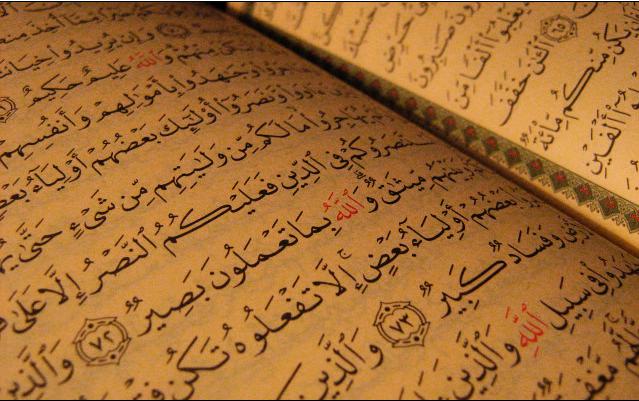 حَرِّضِ
صَٰبِرُونَ
أَلْفًا مِّنَ
٦٥ ٱلْـَٰٔنَ خَفَّفَ
مِّنكُم مِّائَةٌ
أَلْفَيْنِ
أُخِذَ
وَإِن يُرِيدُوا۟
مِنْهُمْ وَٱللَّهُ عَلِيمٌ حَكِيمٌ
وَجَٰهَدُوا۟ بِأَمْوَٰلِهِمْ وَأَنفُسِهِمْ
وَّنَصَرُوٓا۟ أُو۟لَٰٓئِكَ بَعْضُهُمْ أَوْلِيَآءُ بَعْضٍ
مَا لَكُم مِّن وَلَٰيَتِهِم مِّن شَىْءٍ حَتَّىٰ
ٱسْتَنصَرُوكُمْ فِى ٱلدِّينِ فَعَلَيْكُمُ ٱلنَّصْرُ إِلَّا عَلَىٰ
مِّيثَٰقٌ وَٱللَّهُ بِمَا تَعْمَلُونَ بَصِيرٌ ٧٢ وَٱلَّذِينَ
بَعْضُهُمْ أَوْلِيَآءُ بَعْضٍ إِلَّا تَفْعَلُوهُ تَكُن
وَفَسَادٌ كَبِيرٌ ٧٣ وَٱلَّذِينَ
فِى سَبِيلِ ٱللَّهِ وَٱلَّذِينَ